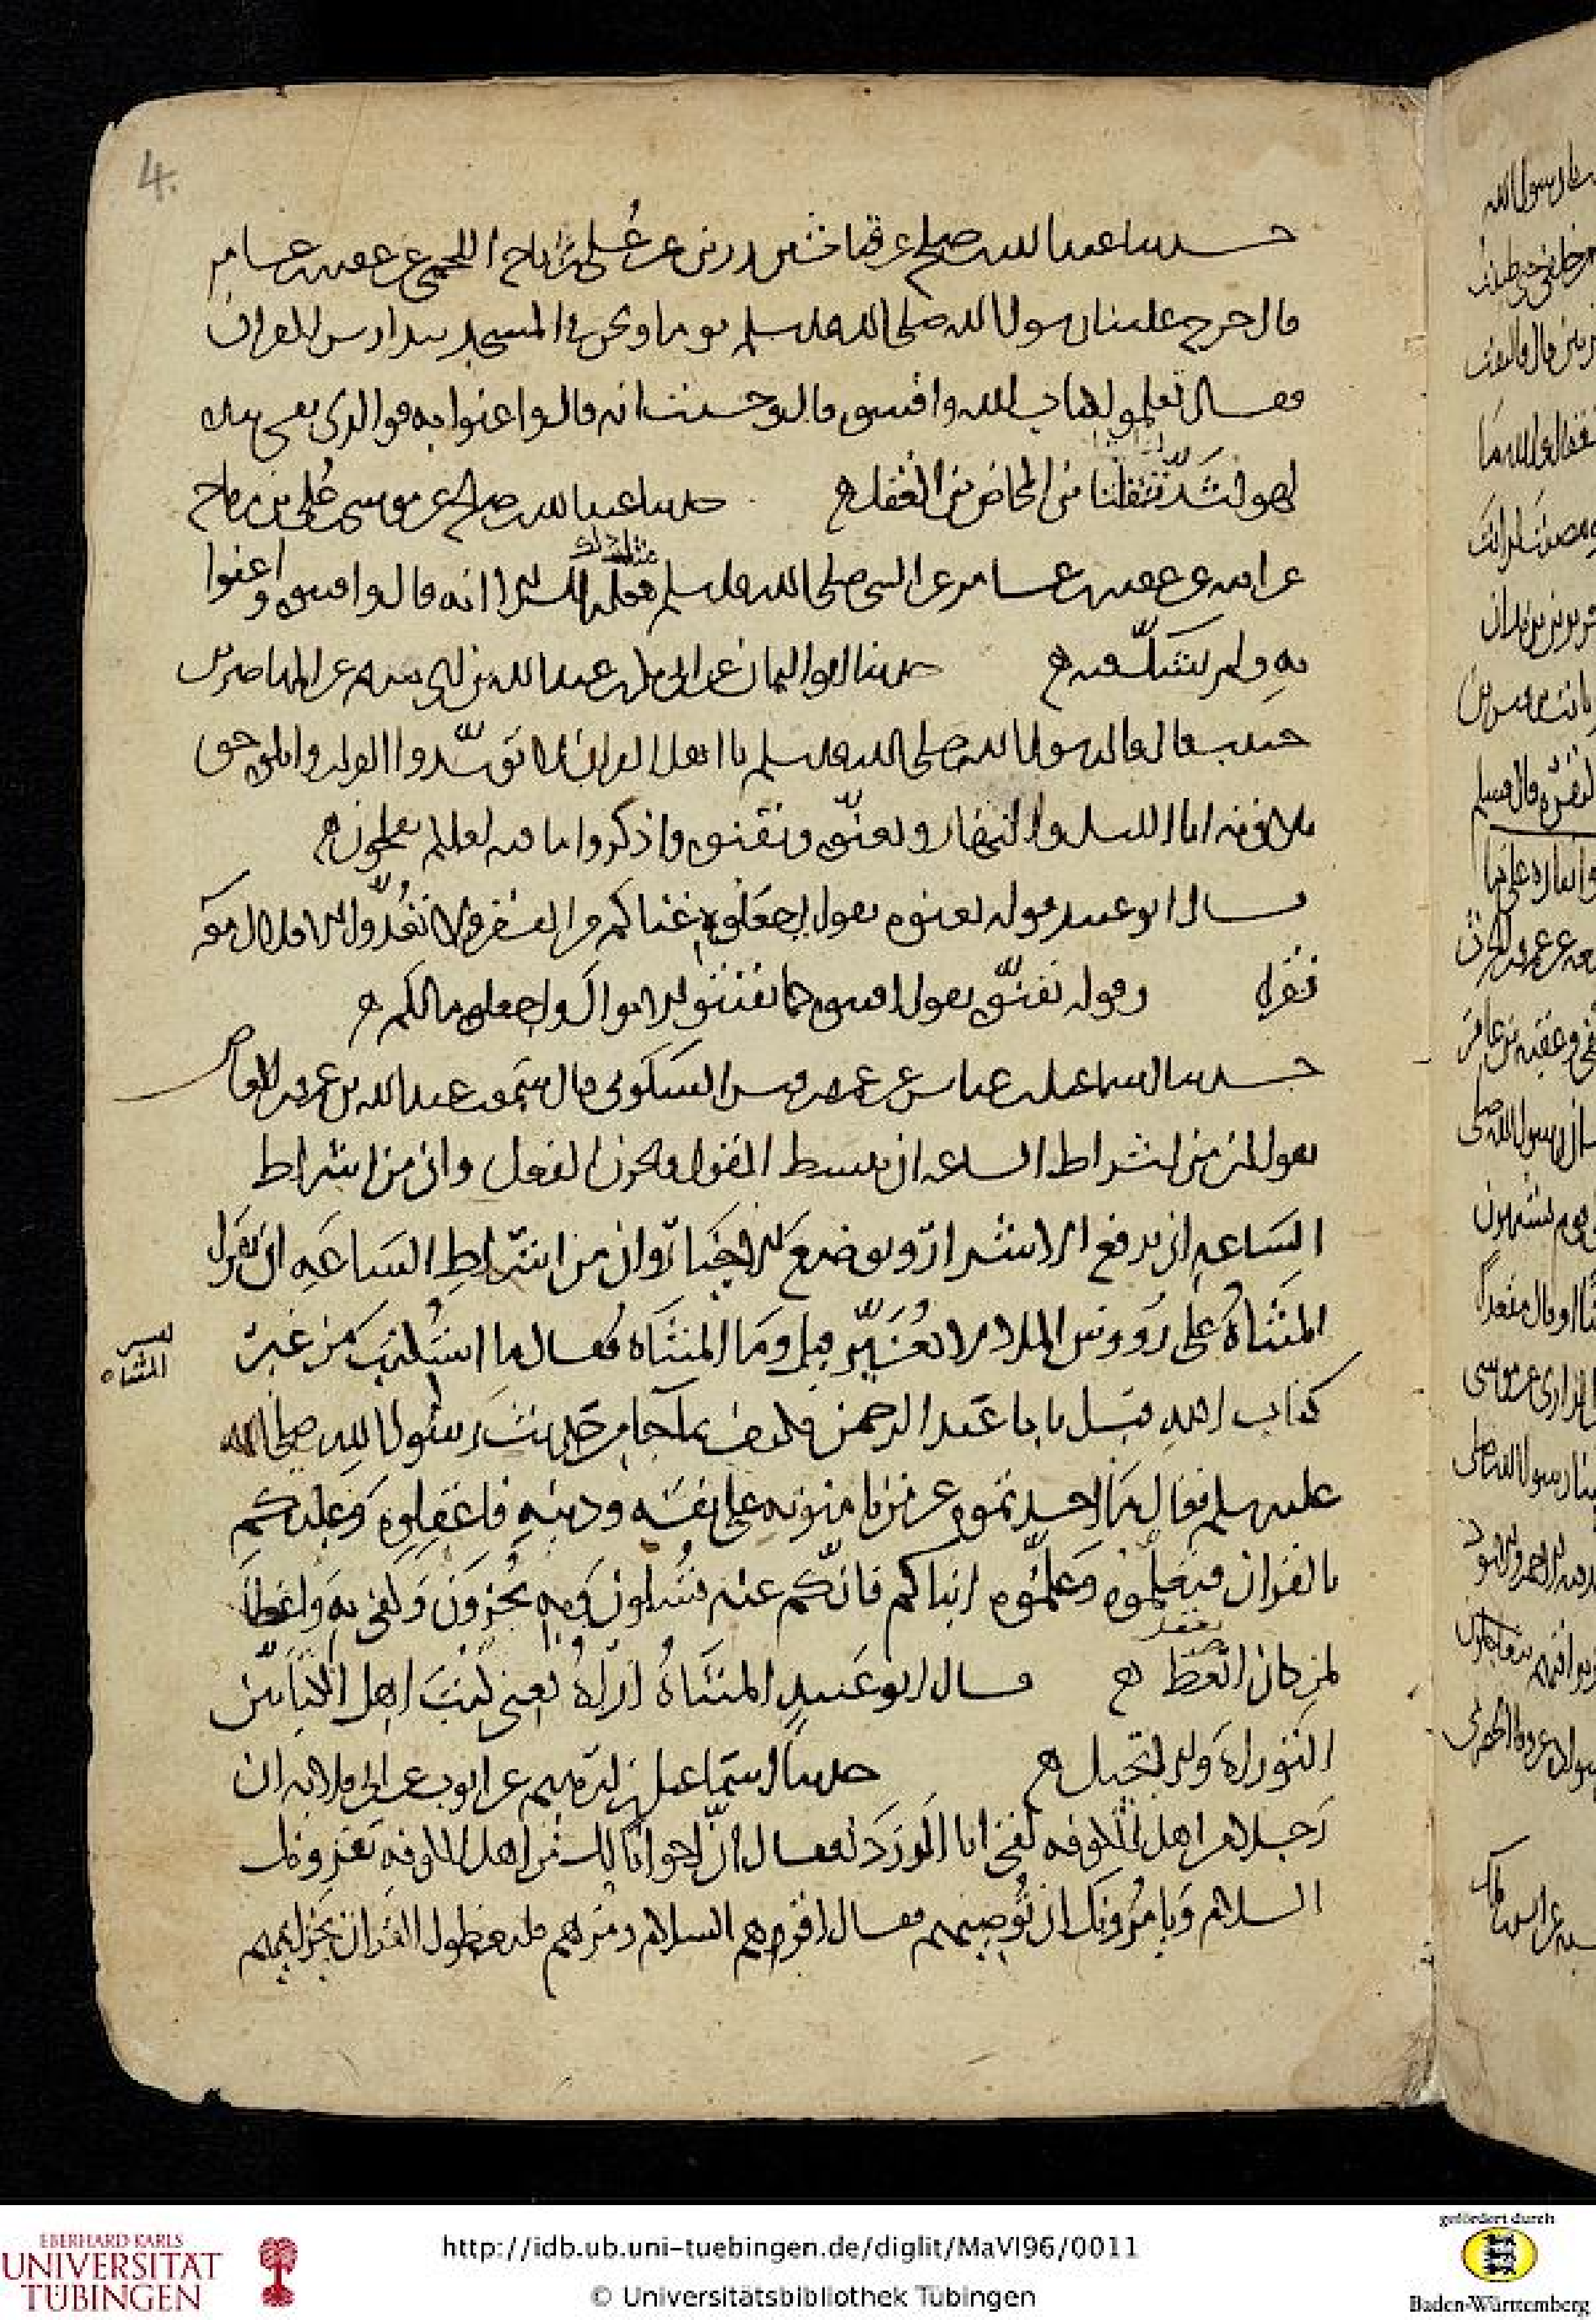 4.
حدثنا عبد الله بن صلح عن قباث بن رزين عن عُلي بن رباح اللخمي عن عقبه بن عامر
قال خرج علينا رسول الله صلى الله عليه وسلم يوما ونحن في المسجد نتدارس القران
فقال تعلموا كتاب الله واقتنوه قال وحسبت انه قال وتغنوا به فوالذي نفسي بيده
لهو اشدّ تفلتا من المخاض من العقل ه حدثنا عبد الله بن صلح عن موسى بن عُلي بن رباح
عن ابيه عن عقبه بن عامر عن النبي صلى الله عليه وسلم مثل ذلك الا انه قال واقتنوه وتغنوا
به ولم يشكّ فيه ه حدثنا ابو اليمان عن ابي بكر بن عبد الله بن ابي مريم عن المهاصر بن
حبيب قال قال رسول الله صلى الله عليه وسلم يا اهل القران لا توسّدوا القران واتلوه حق
تلاوته انا الليل والنهار وتغنّوه وتقنوه واذكروا ما فيه لعلكم تفلحون ه
قال ابو عبيد قوله تغنوه يقول اجعلوه غناكم من الفقر ولا تعُدّوا الاقلال معه
فقرا وقوله تقنّوه يقول اقتنوه كما تقتنوا الاموال واجعلوه مالكم ه
حدثنا اسماعيل بن عياش عن عمرو بن قيس السكوني قال سمعت عبد الله بن عمرو بن العاص
يقول ان من اشراط الساعه ان يبسط القول ويخزن الفعل وان من اشراط
السَاعهِ ان يرفع الاشرارُ ويوضعَ الاخيَارُ وان من اشراطِ السَاعَهِ ان تقرا
المثناةُ على رَووس الملا لا تُغيّر قيل ومَا المثنَاه فقال ما استُكتِبَ من غير
تفسير المثناه
كتاب اللهِ قيل يا با عَبد الرحمن فكيف بما جا من حَديث رسُول اللهِ صلى الله
عليه وسلم فقال مَا اخذتموه عمن تامنونه على نفسه ودينهِ فاعقِلوه وَعليكم
بالقران فتعلّموه وَعلّموه ابناكم فانّكم عنه تُسلون وَبه تُجزَونَ وَكفى بهِ وَاعظًا
لمن كان اتعظ ه قال ابو عَبيد المثنَاةُ ارَاهُ يعني كُتبَ اهل الكتابَين
التوراةَ وَالانجيل ه حدثنا اسمَاعيل بن ابرهيم عن ايوب عن ابي قلابه ان
رَجلا من اهل الكوفه لقي ابا الدردَا فقال انّ اخوانًا لك من اهل الكوفه يَقرونك
السلام وَيَامُرونكَ ان تُوصيَهم فقال اقرهم السلام ومُرهم فليعطوا القران بخزائمهم
http://idb.ub.uni-tuebingen.de/diglit/MaVI96/0011
© Universitätsbibliothek Tübingen
EBERHARD KARLS
UNIVERSITÄT
TÜBINGEN
gefördert durch
Baden-Württemberg